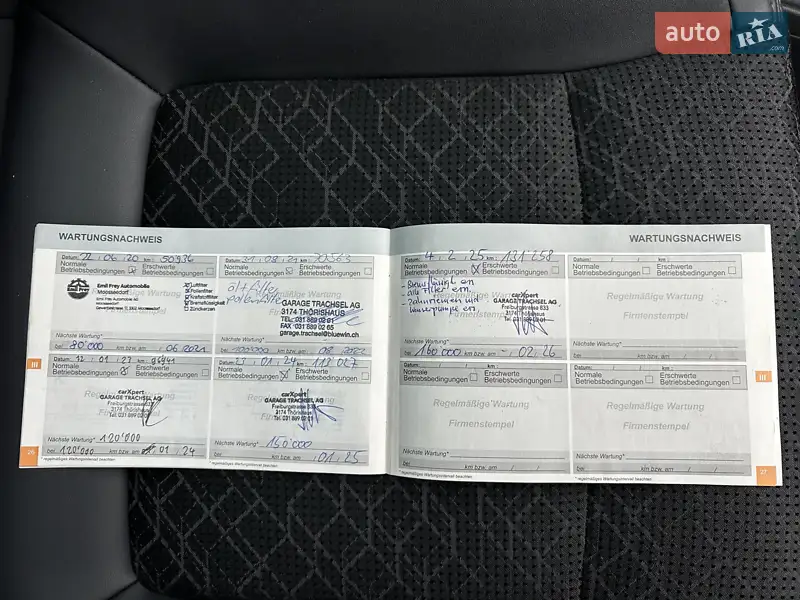 auto RIA
WARTUNGSNACHWEIS
Datum: 22.06.20 km: 50936
Normale Betriebsbedingungen
Erschwerte Betriebsbedingungen
Emil Frey Automobile
Moosseedorf
Emil Frey Automobile AG
Moosseedorf
Luftfilter
Pollenfilter
Kraftstofffilter
Bremsflüssigkeit
Zündkerzen
Nächste Wartung*
bei 80'000 km bzw. am 06.2021
Datum: 31.08.21 km: 70563
Normale Betriebsbedingungen
Erschwerte Betriebsbedingungen
GARAGE TRACHSEL AG
3174 THÖRISHAUS
TEL. 031 889 02 01
FAX 031 889 02 65
garage.trachsel@bluewin.ch
Nächste Wartung*
bei 100'000 km bzw. am 08.2022
Datum: 12.01.23 km: 96941
Normale Betriebsbedingungen
Erschwerte Betriebsbedingungen
carXpert
GARAGE TRACHSEL AG
Freiburgstrasse 833
3174 Thörishaus
Tel. 031 889 02 01
Nächste Wartung* 120'000
bei 120'000 km bzw. am 01.24
01.24 km: 118'027
Normale Betriebsbedingungen
Erschwerte Betriebsbedingungen
carXpert
GARAGE TRACHSEL AG
Freiburgstrasse 833
3174 Thörishaus
Tel. 031 889 02 01
Nächste Wartung* 150'000
bei km bzw. am 01.25
* regelmäßiges Wartungsintervall beachten
26
III
WARTUNGSNACHWEIS
Datum: 4.2.25 km: 131'258
Normale Betriebsbedingungen
Erschwerte Betriebsbedingungen
carXpert
GARAGE TRACHSEL AG
Freiburgstrasse 833
3174 Thörishaus
Nächste Wartung*
bei 160'000 km bzw. am 02.26
Datum: / / km:
Normale Betriebsbedingungen
Erschwerte Betriebsbedingungen
Regelmäßige Wartung
Firmenstempel
Nächste Wartung*
bei km bzw. am / /
Datum: / / km:
Normale Betriebsbedingungen
Erschwerte Betriebsbedingungen
Regelmäßige Wartung
Firmenstempel
Nächste Wartung*
bei km bzw. am / /
Datum: / / km:
Normale Betriebsbedingungen
Erschwerte Betriebsbedingungen
Regelmäßige Wartung
Firmenstempel
Nächste Wartung*
bei km bzw. am / /
* regelmäßiges Wartungsintervall beachten
27
III